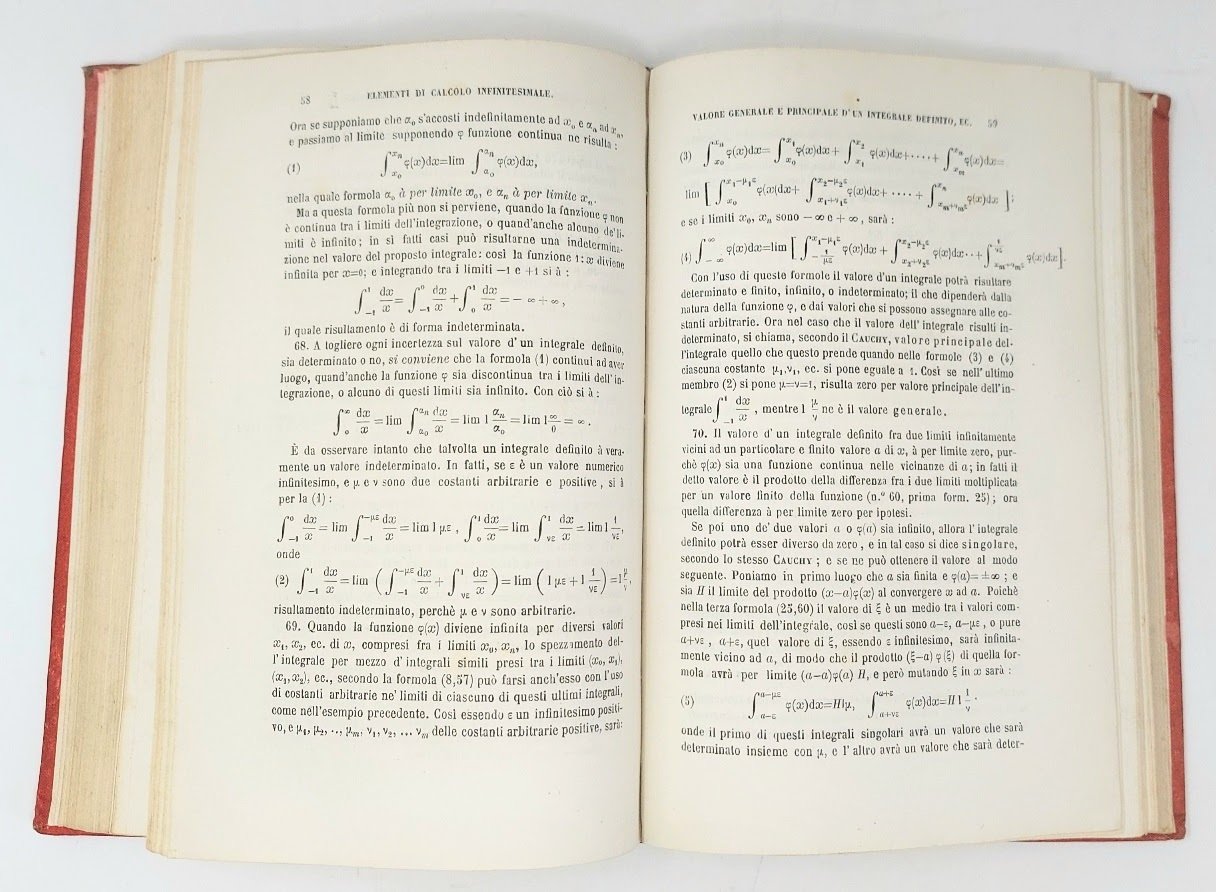 58 ELEMENTI DI CALCOLO INFINITESIMALE.
Ora se supponiamo che α₀ s'accosti indefinitamente ad x₀ e αₙ ad xₙ,
e passiamo al limite supponendo φ funzione continua ne risulta :
(1) ∫_{x₀}^{xₙ} φ(x)dx=lim ∫_{α₀}^{αₙ} φ(x)dx,
nella quale formola α₀ à per limite x₀, e αₙ à per limite xₙ.
Ma a questa formola più non si perviene, quando la funzione φ non
è continua tra i limiti dell'integrazione, o quand'anche alcuno de'li-
miti è infinito; in si fatti casi può risultarne una indetermina-
zione nel valore del proposto integrale: così la funzione 1:x diviene
infinita per x=0; e integrando tra i limiti −1 e +1 si à :
∫_{−1}^{1} dx/x = ∫_{−1}^{0} dx/x + ∫_{0}^{1} dx/x = − ∞ + ∞ ,
il quale risultamento è di forma indeterminata.
68. A togliere ogni incertezza sul valore d' un integrale definito,
sia determinato o no, si conviene che la formola (1) continui ad aver
luogo, quand'anche la funzione φ sia discontinua tra i limiti dell'in-
tegrazione, o alcuno di questi limiti sia infinito. Con ciò si à :
∫_{0}^{∞} dx/x = lim ∫_{α₀}^{αₙ} dx/x = lim l αₙ/α₀ = lim l ∞/0 = ∞ .
È da osservare intanto che talvolta un integrale definito à vera-
mente un valore indeterminato. In fatti, se ε è un valore numerico
infinitesimo, e μ e ν sono due costanti arbitrarie e positive, si à
per la (1) :
∫_{−1}^{0} dx/x = lim ∫_{−1}^{−με} dx/x = lim l με , ∫_{0}^{1} dx/x = lim ∫_{νε}^{1} dx/x = lim l 1/νε,
onde
(2) ∫_{−1}^{1} dx/x = lim ( ∫_{−1}^{−με} dx/x + ∫_{νε}^{1} dx/x ) = lim ( l με + l 1/νε ) = l μ/ν,
risultamento indeterminato, perchè μ e ν sono arbitrarie.
69. Quando la funzione φ(x) diviene infinita per diversi valori
x₁, x₂, ec. di x, compresi fra i limiti x₀, xₙ, lo spezzamento del-
l'integrale per mezzo d' integrali simili presi tra i limiti (x₀, x₁),
(x₁, x₂), ec., secondo la formola (8,57) può farsi anch'esso con l'uso
di costanti arbitrarie ne' limiti di ciascuno di questi ultimi integrali,
come nell'esempio precedente. Così essendo ε un infinitesimo positi-
vo, e μ₁, μ₂, .., μₘ, ν₁, ν₂, ... νₘ delle costanti arbitrarie positive, sarà:
VALORE GENERALE E PRINCIPALE D'UN INTEGRALE DEFINITO, EC. 59
(3) ∫_{x₀}^{xₙ} φ(x)dx= ∫_{x₀}^{x₁} φ(x)dx + ∫_{x₁}^{x₂} φ(x)dx+ ···· + ∫_{xₘ}^{xₙ} φ(x)dx=
lim [ ∫_{x₀}^{x₁−μ₁ε} φ(x)dx+ ∫_{x₁+ν₁ε}^{x₂−μ₂ε} φ(x)dx+ ···· + ∫_{xₘ+νₘε}^{xₙ} φ(x)dx ];
e se i limiti x₀, xₙ sono − ∞ e + ∞ , sarà :
(4) ∫_{−∞}^{∞} φ(x)dx=lim [ ∫_{−1/με}^{x₁−μ₁ε} φ(x)dx + ∫_{x₁+ν₁ε}^{x₂−μ₂ε} φ(x)dx ·· + ∫_{xₘ+νₘε}^{1/νε} φ(x)dx ].
Con l'uso di queste formole il valore d'un integrale potrà risultare
determinato e finito, infinito, o indeterminato; il che dipenderà dalla
natura della funzione φ, e dai valori che si possono assegnare alle co-
stanti arbitrarie. Ora nel caso che il valore dell' integrale risulti in-
determinato, si chiama, secondo il CAUCHY, valore principale del-
l'integrale quello che questo prende quando nelle formole (3) e (4)
ciascuna costante μ₁,ν₁, ec. si pone eguale a 1. Così se nell' ultimo
membro (2) si pone μ=ν=1, risulta zero per valore principale dell'in-
tegrale ∫_{−1}^{1} dx/x , mentre l μ/ν ne è il valore generale.
70. Il valore d' un integrale definito fra due limiti infinitamente
vicini ad un particolare e finito valore a di x, à per limite zero, pur-
chè φ(x) sia una funzione continua nelle vicinanze di a; in fatti il
detto valore è il prodotto della differenza fra i due limiti moltiplicata
per un valore finito della funzione (n.º 60, prima form. 25) ; ora
quella differenza à per limite zero per ipotesi.
Se poi uno de' due valori a o φ(a) sia infinito, allora l' integrale
definito potrà esser diverso da zero , e in tal caso si dice singolare,
secondo lo stesso CAUCHY ; e se ne può ottenere il valore al modo
seguente. Poniamo in primo luogo che a sia finita e φ(a)= ± ∞ ; e
sia H il limite del prodotto (x−a)φ(x) al convergere x ad a. Poichè
nella terza formola (25,60) il valore di ξ è un medio tra i valori com-
presi nei limiti dell'integrale, così se questi sono a−ε, a−με , o pure
a+νε , a+ε, quel valore di ξ, essendo ε infinitesimo, sarà infinita-
mente vicino ad a, di modo che il prodotto (ξ−a) φ (ξ) di quella for-
mola avrà per limite (a−a)φ(a) H, e però mutando ξ in x sarà :
(5) ∫_{a−ε}^{a−με} φ(x)dx=Hlμ, ∫_{a+νε}^{a+ε} φ(x)dx=H l 1/ν .
onde il primo di questi integrali singolari avrà un valore che sarà
determinato insieme con μ, e l' altro avrà un valore che sarà deter-